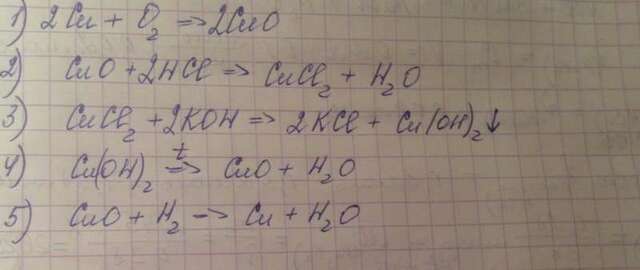 1) 2Cu + O₂ => 2CuO
2) CuO + 2HCl => CuCl₂ + H₂O
3) CuCl₂ + 2KOH => 2KCl + Cu(OH)₂↓
4) Cu(OH)₂ =t=> CuO + H₂O
5) CuO + H₂ -> Cu + H₂O